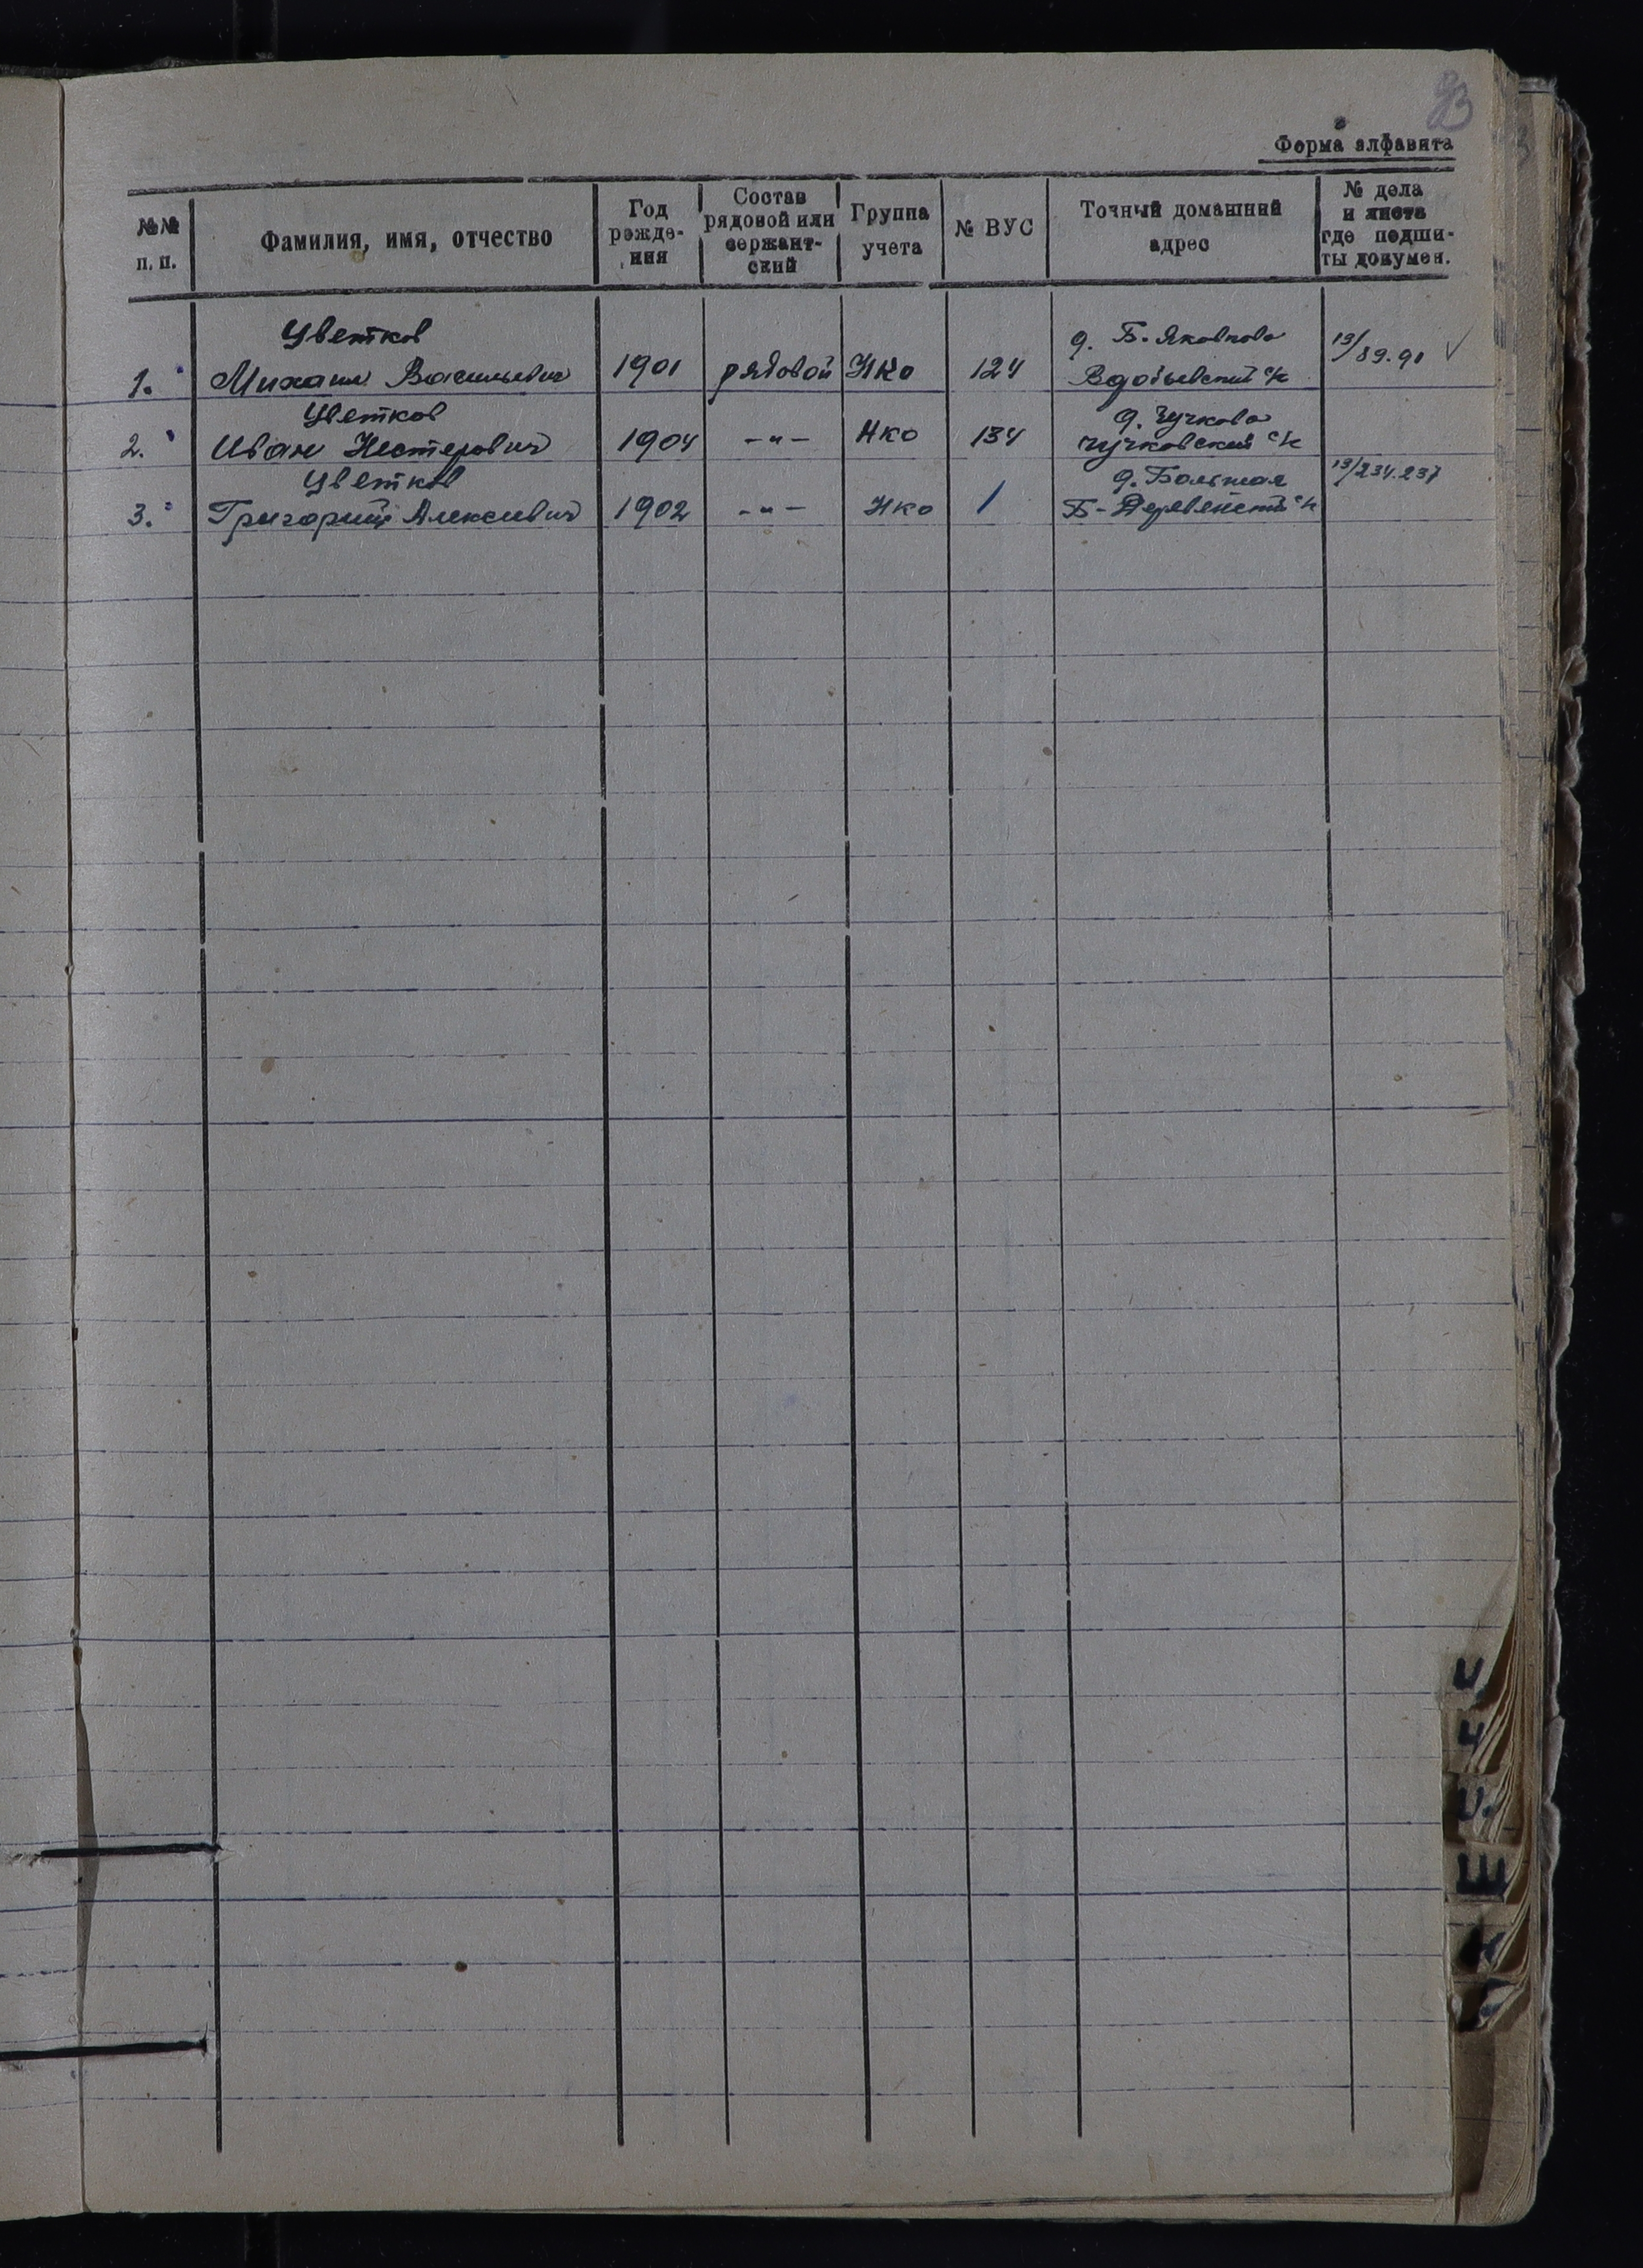 93
Форма алфавита
№№ п. п.
Фамилия, имя, отчество
Год рожде- ния
Состав рядовой или сержант- ский
Группа учета
№ ВУС
Точный домашний адрес
№ дела и листа где подши- ты докумен.
Цветков д. Б. Яковково 13/89.91 ✓
1. Михаил Васильевич 1901 рядовой НКО 124 с/с
Цветков д. Чучково
2. Иван Нестерович 1904 -"- НКО 134 Чучковский с/с
Цветков д. Большая 13/234.237
3. Григорий Алексеевич 1902 -"- НКО 1 Б-Деревенский с/с
Ц
Ч
Ш